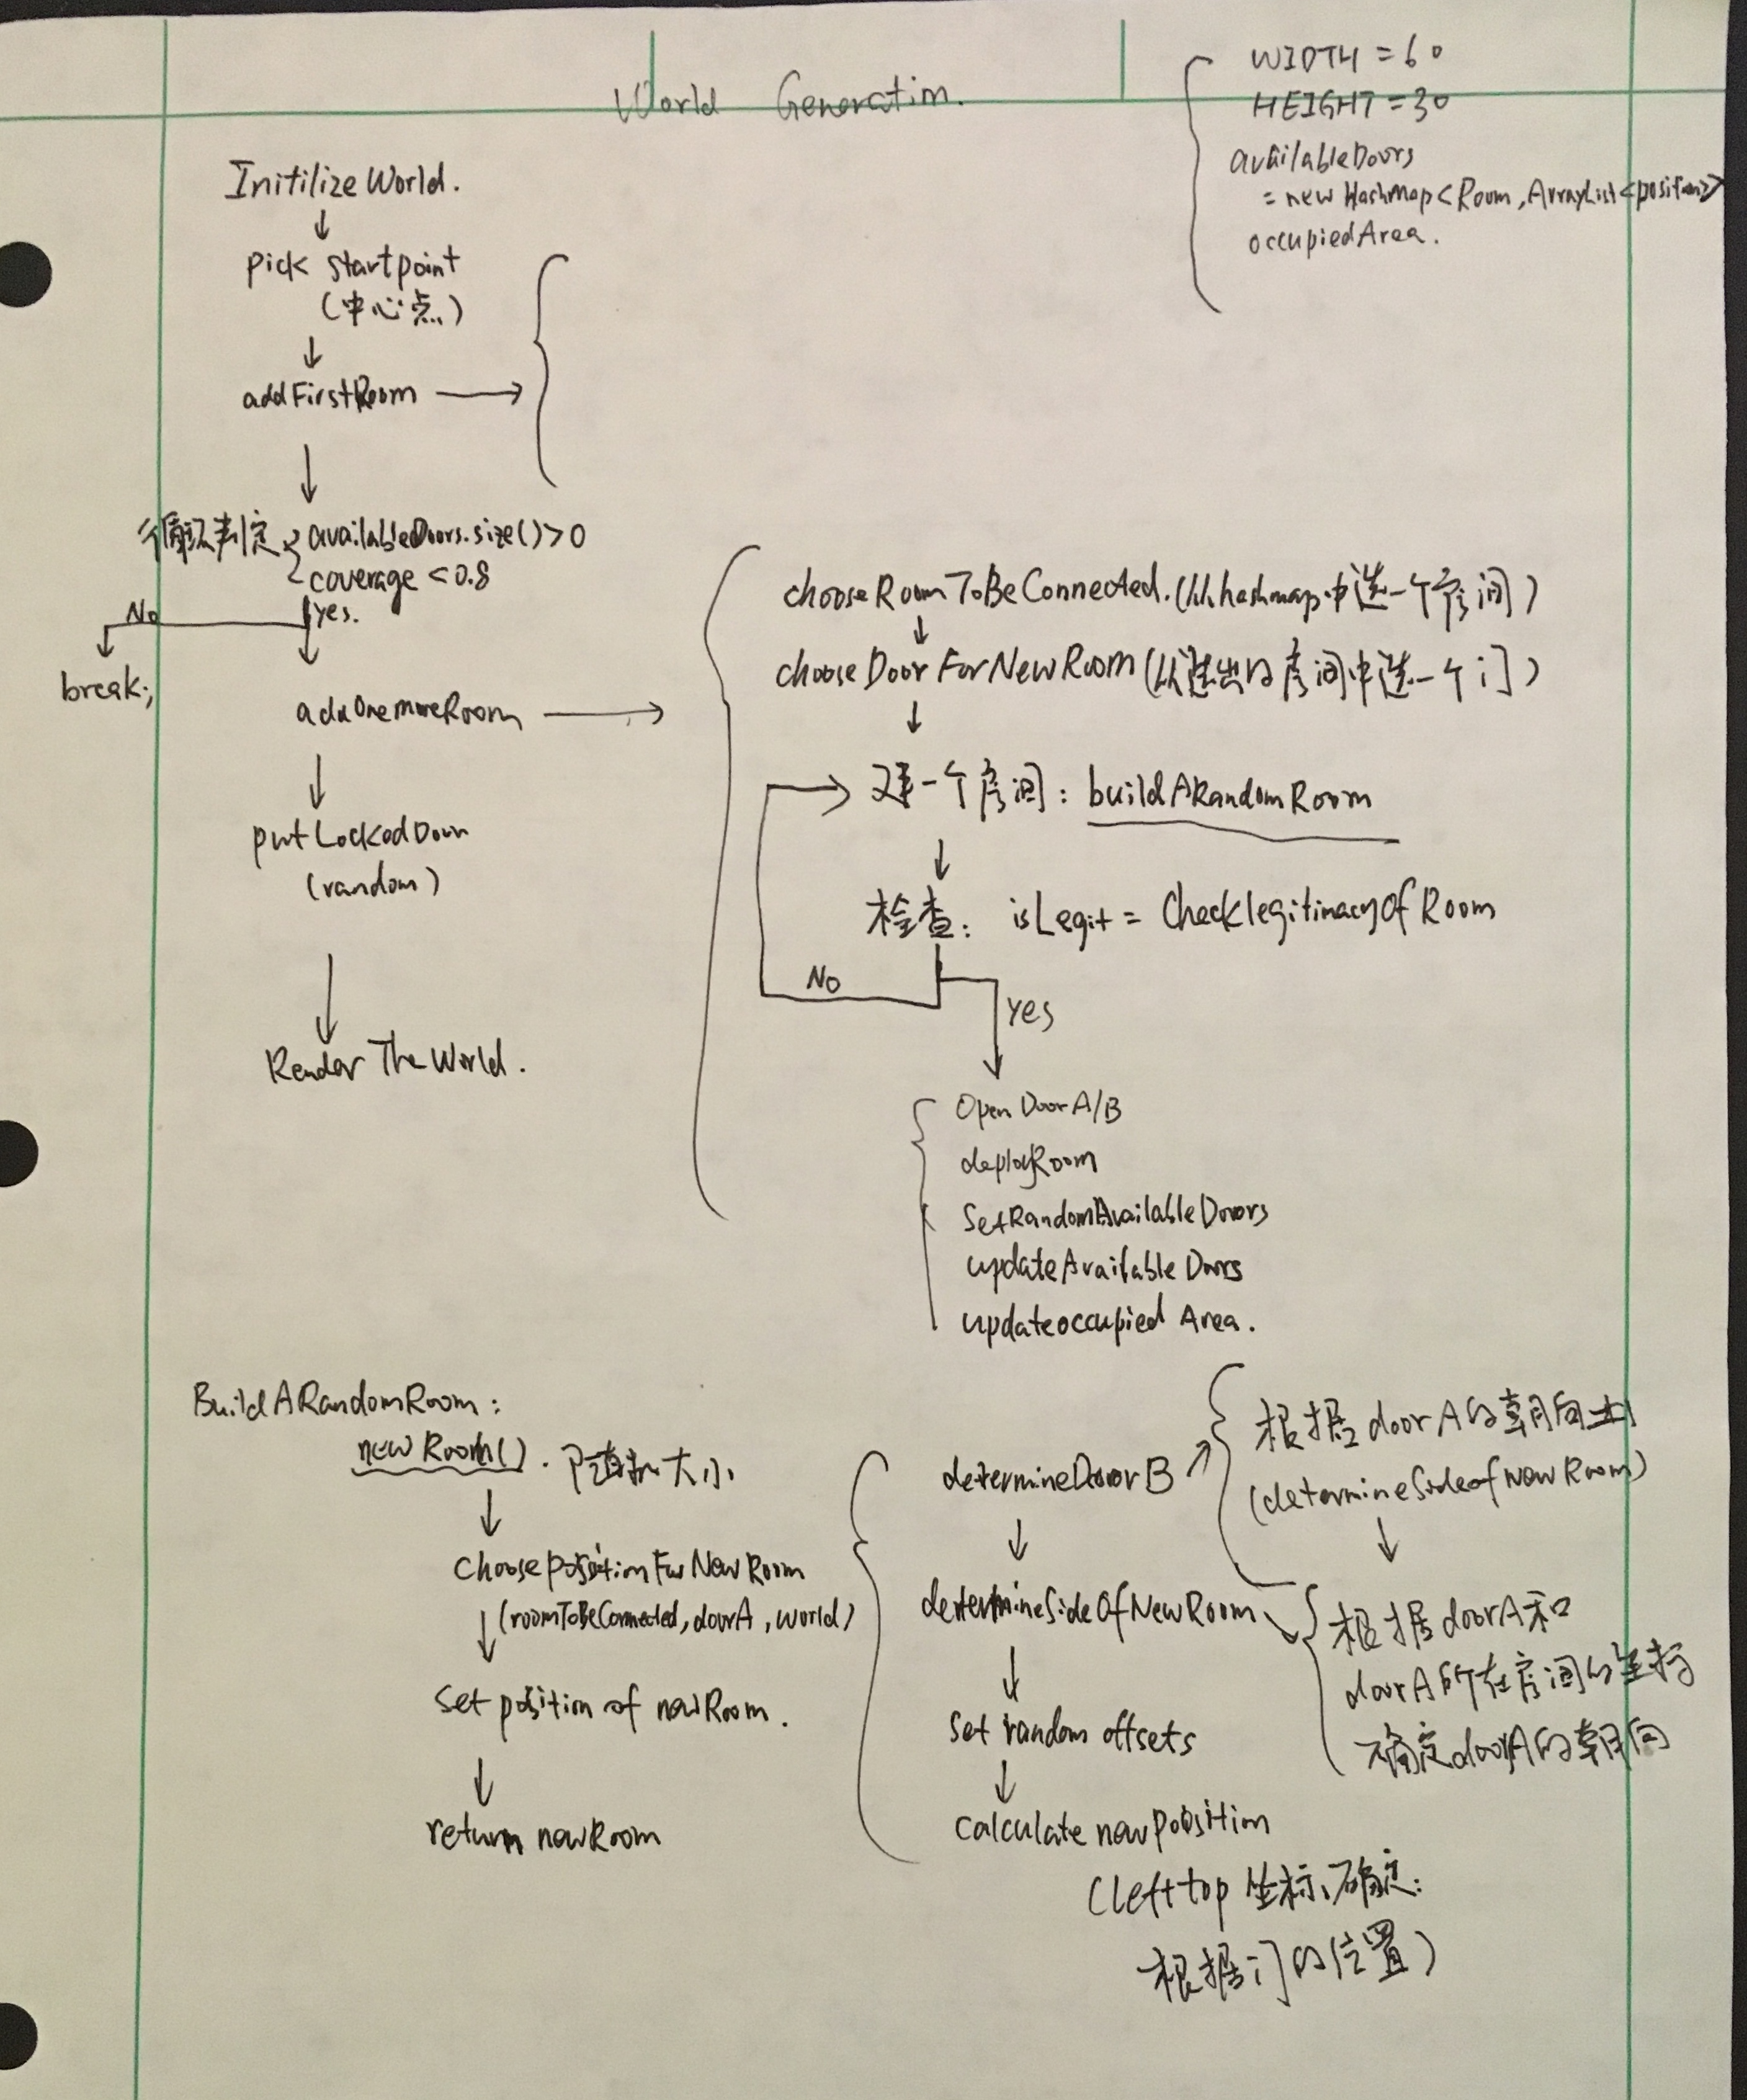 World Generation.
WIDTH = 60
HEIGHT = 30
availableDoors
= new HashMap<Room, ArrayList<position>>
occupiedArea.
InitilizeWorld.
↓
pick startpoint
(中心点)
↓
addFirstRoom →
↓
循环判定 { availableDoors.size() > 0
coverage < 0.8
No
yes.
break;
addOnemoreRoom →
↓
putLockedDoor
(random)
↓
Render The World.
chooseRoomToBeConnected. (从hashmap中选一个房间)
↓
chooseDoorForNewRoom (从选出的房间中选一个门)
↓
建一个房间: buildARandomRoom
↓
检查: isLegit = ChecklegitimacyOfRoom
No
yes
Open Door A/B
deployRoom
SetRandomAvailableDoors
updateAvailableDoors
updateoccupied Area.
BuildARandomRoom:
newRoom(). 随机大小
↓
ChoosepositionForNewRoom
↓ (roomToBeConnected, doorA, world)
Set position of newRoom.
↓
return newRoom
determineDoorB ↗
↓
determineSideOfNewRoom ↘
↓
Set random offsets
↓
Calculate newposition
(lefttop 坐标确定:
根据门的位置)
根据doorA的朝向
(determineSideofNewRoom)
↓
根据doorA和
doorA所在房间的坐标
确定doorA的朝向